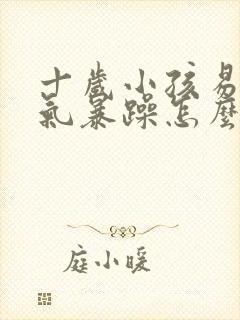 十歲小孩易
氣暴躁怎麼
庭小暖